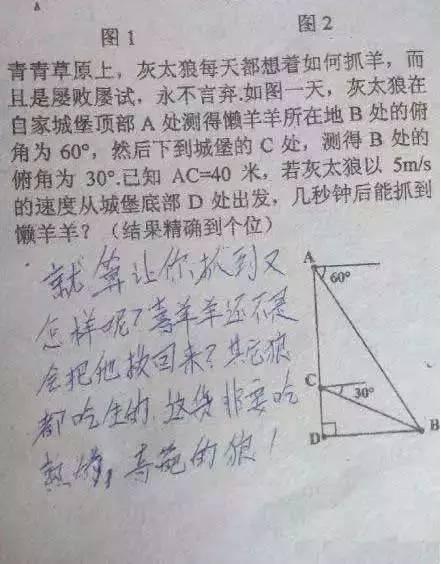 图1 图2
青青草原上，灰太狼每天都想着如何抓羊，而
且是屡败屡试，永不言弃.如图一天，灰太狼在
自家城堡顶部A处测得懒羊羊所在地B处的俯
角为60°，然后下到城堡的C处，测得B处的
俯角为30°.已知AC=40米，若灰太狼以5m/s
的速度从城堡底部D处出发，几秒钟后能抓到
懒羊羊？（结果精确到个位）
就算让你抓到又
怎样呢？喜羊羊还不是
会把他救回来？其它狼
都吃生的，这货非要吃
熟的，奇葩的狼！
A
60°
C
30°
D
B